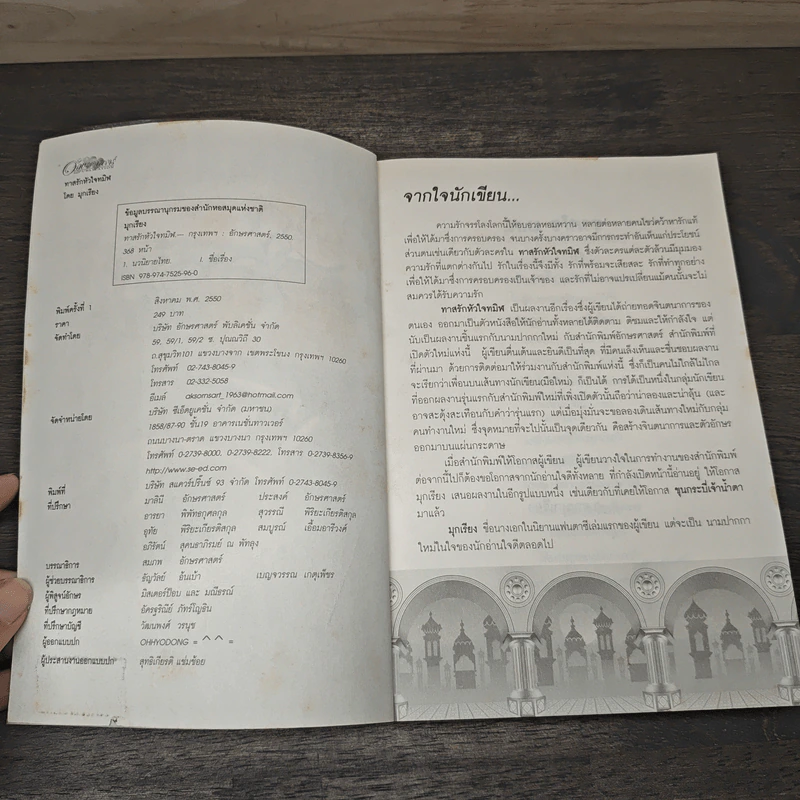 ทาสรักหัวใจทมิฬ
โดย มุกเรียง
ข้อมูลบรรณานุกรมของสำนักหอสมุดแห่งชาติ
มุกเรียง
ทาสรักหัวใจทมิฬ.— กรุงเทพฯ : อักษรศาสตร์, 2550.
368 หน้า
1. นวนิยายไทย. I. ชื่อเรื่อง
ISBN 978-974-7525-96-0
พิมพ์ครั้งที่ 1 สิงหาคม พ.ศ. 2550
ราคา 249 บาท
จัดทำโดย บริษัท อักษรศาสตร์ พับลิเคชั่น จำกัด
59, 59/1, 59/2 ซ. ปุณณวิถี 30
ถ.สุขุมวิท101 แขวงบางจาก เขตพระโขนง กรุงเทพฯ 10260
โทรศัพท์ 02-743-8045-9
โทรสาร 02-332-5058
อีเมล์ aksornsart_1963@hotmail.com
จัดจำหน่ายโดย บริษัท ซีเอ็ดยูเคชั่น จำกัด (มหาชน)
1858/87-90 ชั้น19 อาคารเนชั่นทาวเวอร์
ถนนบางนา-ตราด แขวงบางนา กรุงเทพฯ 10260
โทรศัพท์ 0-2739-8000, 0-2739-8222, โทรสาร 0-2739-8356-9
http://www.se-ed.com
พิมพ์ที่ บริษัท สแควร์ปริ๊นซ์ 93 จำกัด โทรศัพท์ 0-2743-8045-9
ที่ปรึกษา มาลินี อักษรศาสตร์ ประสงค์ อักษรศาสตร์
อารยา พิพัทธกุศลกุล สุวรรณี พิริยะเกียรติสกุล
อุทัย พิริยะเกียรติสกุล สมบูรณ์ เอื้อมอารีวงศ์
อภิรัตน์ สุคนธาภิรมย์ ณ พัทลุง
บรรณาธิการ สมภพ อักษรศาสตร์
ผู้ช่วยบรรณาธิการ ธัญวัลย์ อ้นเบ้า เบญจวรรณ เกตุเพ็ชร
ผู้พิสูจน์อักษร มิสเตอร์ป๊อบ และ มณีธรณ์
ที่ปรึกษากฎหมาย อัครจุริณีย์ ภัทร์โญธิน
ที่ปรึกษาบัญชี วัฒนพงศ์ วรนุช
ผู้ออกแบบปก OHHYODONG = ^ ^ =
ผู้ประสานงานออกแบบปก สุทธิเกียรติ แช่มช้อย
จากใจนักเขียน...
ความรักจรรโลงโลกนี้ให้อบอวลหอมหวาน หลายต่อหลายคนไขว่คว้าหารักแท้
เพื่อให้ได้มาซึ่งการครอบครอง จนบางครั้งบางคราวอาจมีการกระทำอันเห็นแก่ประโยชน์
ส่วนตนเช่นเดียวกับตัวละครใน ทาสรักหัวใจทมิฬ ซึ่งตัวละครแต่ละตัวล้วนมีมุมมอง
ความรักที่แตกต่างกันไป รักในเรื่องนี้จึงมีทั้ง รักที่พร้อมจะเสียสละ รักที่ทำทุกอย่าง
เพื่อให้ได้มาซึ่งการครอบครองเป็นเจ้าของ และรักที่ไม่อาจแปรเปลี่ยนแม้คนนั้นจะไม่
สมควรได้รับความรัก
ทาสรักหัวใจทมิฬ เป็นผลงานอีกเรื่องซึ่งผู้เขียนได้ถ่ายทอดจินตนาการของ
ตนเอง ออกมาเป็นตัวหนังสือให้นักอ่านทั้งหลายได้ติดตาม ติชมและให้กำลังใจ แต่
นับเป็นผลงานชิ้นแรกกับนามปากกาใหม่ กับสำนักพิมพ์อักษรศาสตร์ สำนักพิมพ์ที่
เปิดตัวใหม่แห่งนี้ ผู้เขียนตื่นเต้นและยินดีเป็นที่สุด ที่มีคนเล็งเห็นและชื่นชอบผลงาน
ที่ผ่านมา ด้วยการติดต่อมาให้ร่วมงานกับสำนักพิมพ์แห่งนี้ ซึ่งก็เป็นคนไม่ใกล้ไม่ไกล
จะเรียกว่าเพื่อนบนเส้นทางนักเขียน(มือใหม่) ก็เป็นได้ การได้เป็นหนึ่งในกลุ่มนักเขียน
ที่ออกผลงานรุ่นแรกกับสำนักพิมพ์ใหม่ที่เพิ่งเปิดตัวนั้นถือว่าน่าลองและน่าลุ้น (และ
อาจสะดุ้งสะเทือนกับคำว่ารุ่นแรก) แต่เมื่อมุ่งมั่นจะขอลองเดินเส้นทางใหม่กับกลุ่ม
คนทำงานใหม่ ซึ่งจุดหมายที่จะไปนั้นเป็นจุดเดียวกัน คือสร้างจินตนาการและตัวอักษร
ออกมาบนแผ่นกระดาษ
เมื่อสำนักพิมพ์ให้โอกาสผู้เขียน ผู้เขียนวางใจในการทำงานของสำนักพิมพ์
ต่อจากนี้ไปก็ต้องขอโอกาสจากนักอ่านใจดีทั้งหลาย ที่กำลังเปิดหน้านี้อ่านอยู่ ให้โอกาส
มุกเรียง เสนอผลงานในอีกรูปแบบหนึ่ง เช่นเดียวกับที่เคยให้โอกาส ขุนกระบี่เจ้าน้ำตา
มาแล้ว
มุกเรียง ชื่อนางเอกในนิยายแฟนตาซีเล่มแรกของผู้เขียน แต่จะเป็น นามปากกา
ใหม่ในใจของนักอ่านใจดีตลอดไป